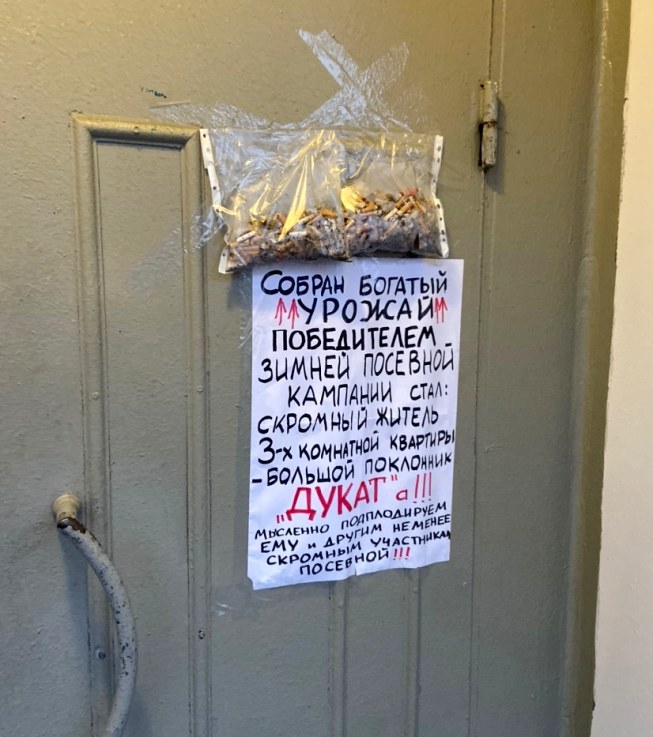 СОБРАН БОГАТЫЙ
↑↑УРОЖАЙ↑↑
ПОБЕДИТЕЛЕМ
ЗИМНЕЙ ПОСЕВНОЙ
КАМПАНИИ СТАЛ:
СКРОМНЫЙ ЖИТЕЛЬ
3-х КОМНАТНОЙ КВАРТИРЫ
-БОЛЬШОЙ ПОКЛОННИК
„ДУКАТ"а!!!
МЫСЛЕННО ПОАПЛОДИРУЕМ
ЕМУ и ДРУГИМ НЕ МЕНЕЕ
СКРОМНЫМ УЧАСТНИКАМ
ПОСЕВНОЙ!!!